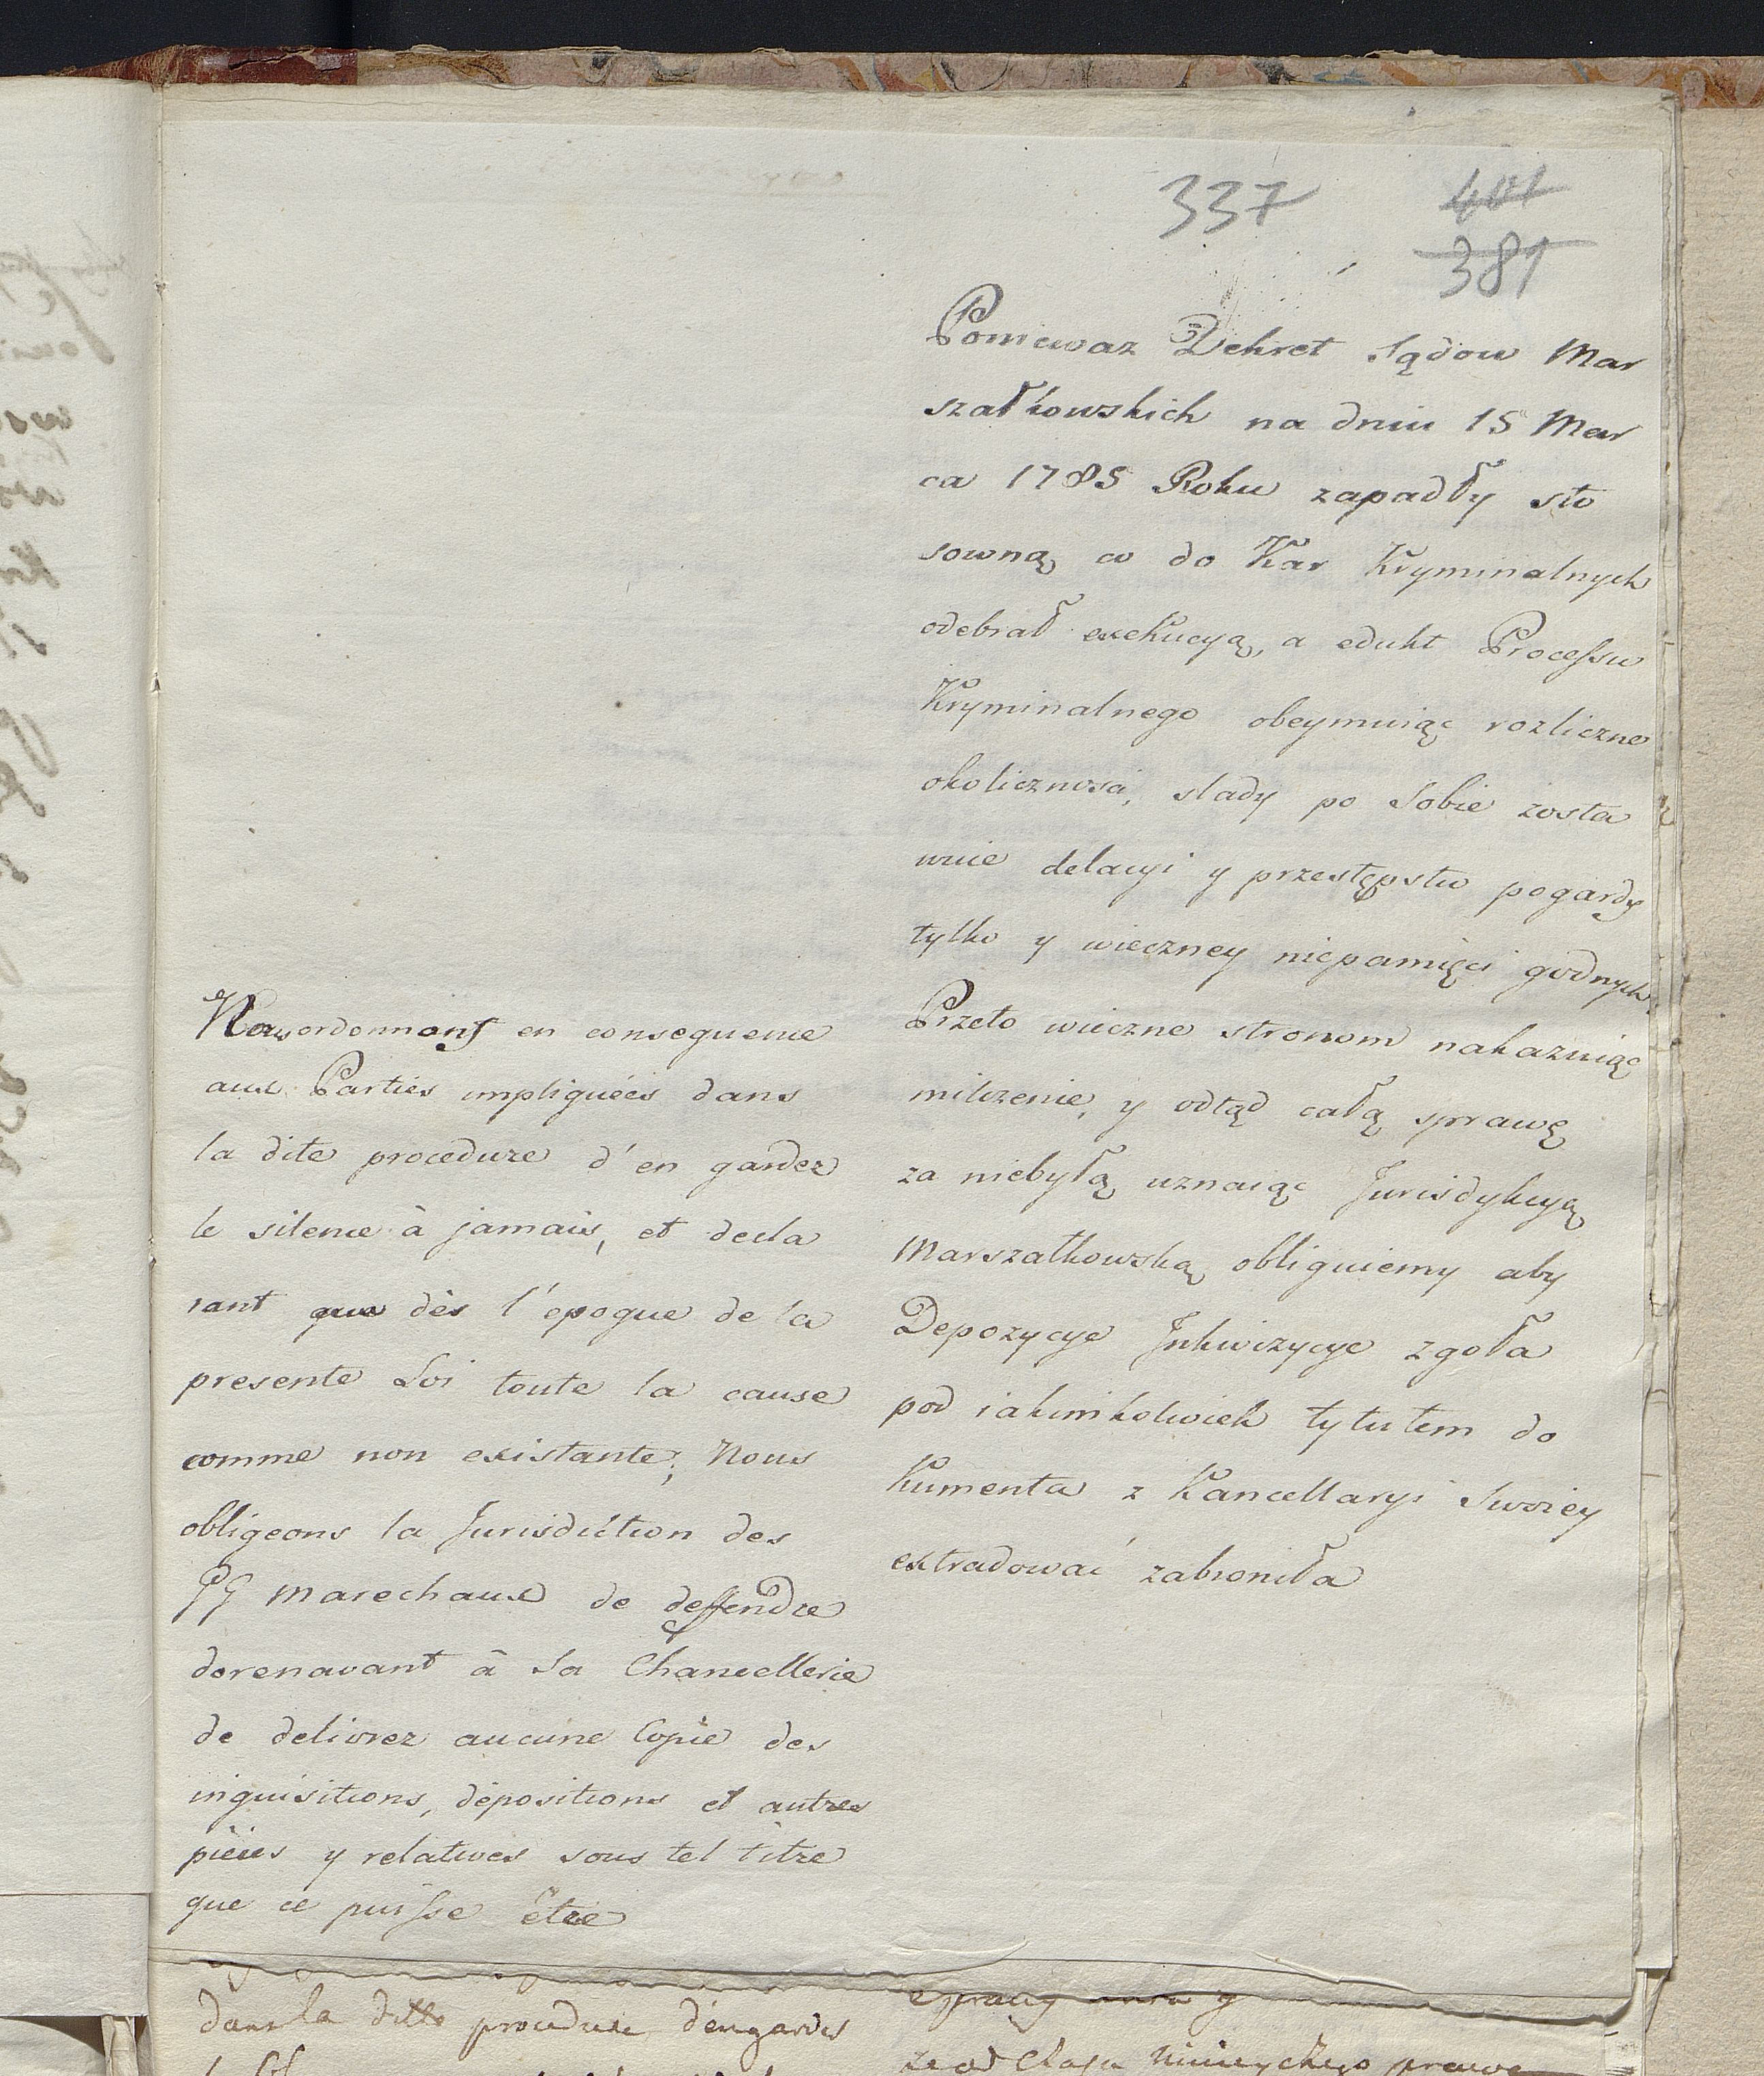 337
401
381
Poniewaz Dekret Sądow Mar
szałkowskich na dniu 15 Mar
ca 1785 Roku zapadły sto
sowną co do Kar Kryminalnych
odebrał exekucyą, a edukt Processu
Kryminalnego obeymuiąc rozliczne
okolicznosci, slady po Sobie zosta
wuie delacyi y przestępstw pogardy
tylko y wieczney niepamięci godnych.
Przeto wieczne stronom nakazuiąc
milczenie, y odtąd całą sprawę
za niebyłą uznaiąc Jurisdykcyą
Marszałkowską obliguiemy aby
Depozycye Inkwizycye zgoła
pod iakimkolwiek tytułem do
kumenta z Kancellaryi Swoiey
extradować zabroniła
Nous ordonnons en consequence
aux Parties impliquées dans
la dite procedure d'en garder
le silence à jamais, et decla
rant que dès l'epoque de la
presente Loi toute la cause
comme non existante; Nous
obligeons la Jurisdiction des
GG Marechaux de deffendre
dorenavant à Sa Chancellerie
de delivrer aucune Copie des
inquisitions, dépositions et autres
pièces y relatives sous tel titre
que ce puisse être
dans la ditte procedure d'en garder
ze od Czasu ninieyszego prawa